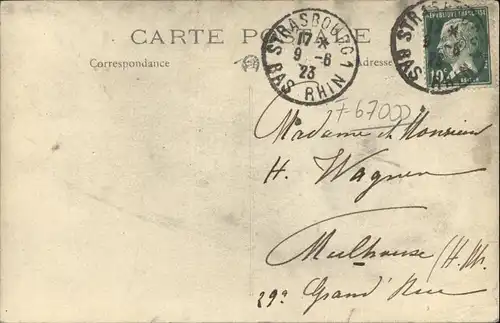 CARTE POSTALE
Correspondance
Adresse
STRASBOURG 1
17 *
9 - 8
23
BAS RHIN
STRAS
BAS RHIN
RÉPUBLIQUE FRANÇAISE
F-67000
Madame et Monsieur
H. Wagner
Mulhouse (H. Rh.
29a Grand'Rue